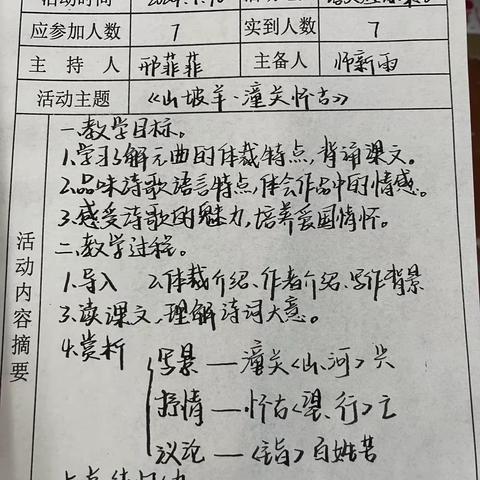 活动时间
应参加人数 7 实到人数 7
主持人 邢菲菲 主备人 师新雨
活动主题 《山坡羊·潼关怀古》
活动内容摘要
一、教学目标。
1.学习了解元曲的体裁特点,背诵课文。
2.品味诗歌语言特点,体会作品中的情感。
3.感受诗歌的魅力,培养爱国情怀。
二、教学过程。
1.导入 2.体裁介绍、作者介绍、写作背景
3.读课文,理解诗词大意。
4.赏析
写景—潼关<山河>
抒情—怀古<望、行>
议论—<主旨>百姓苦